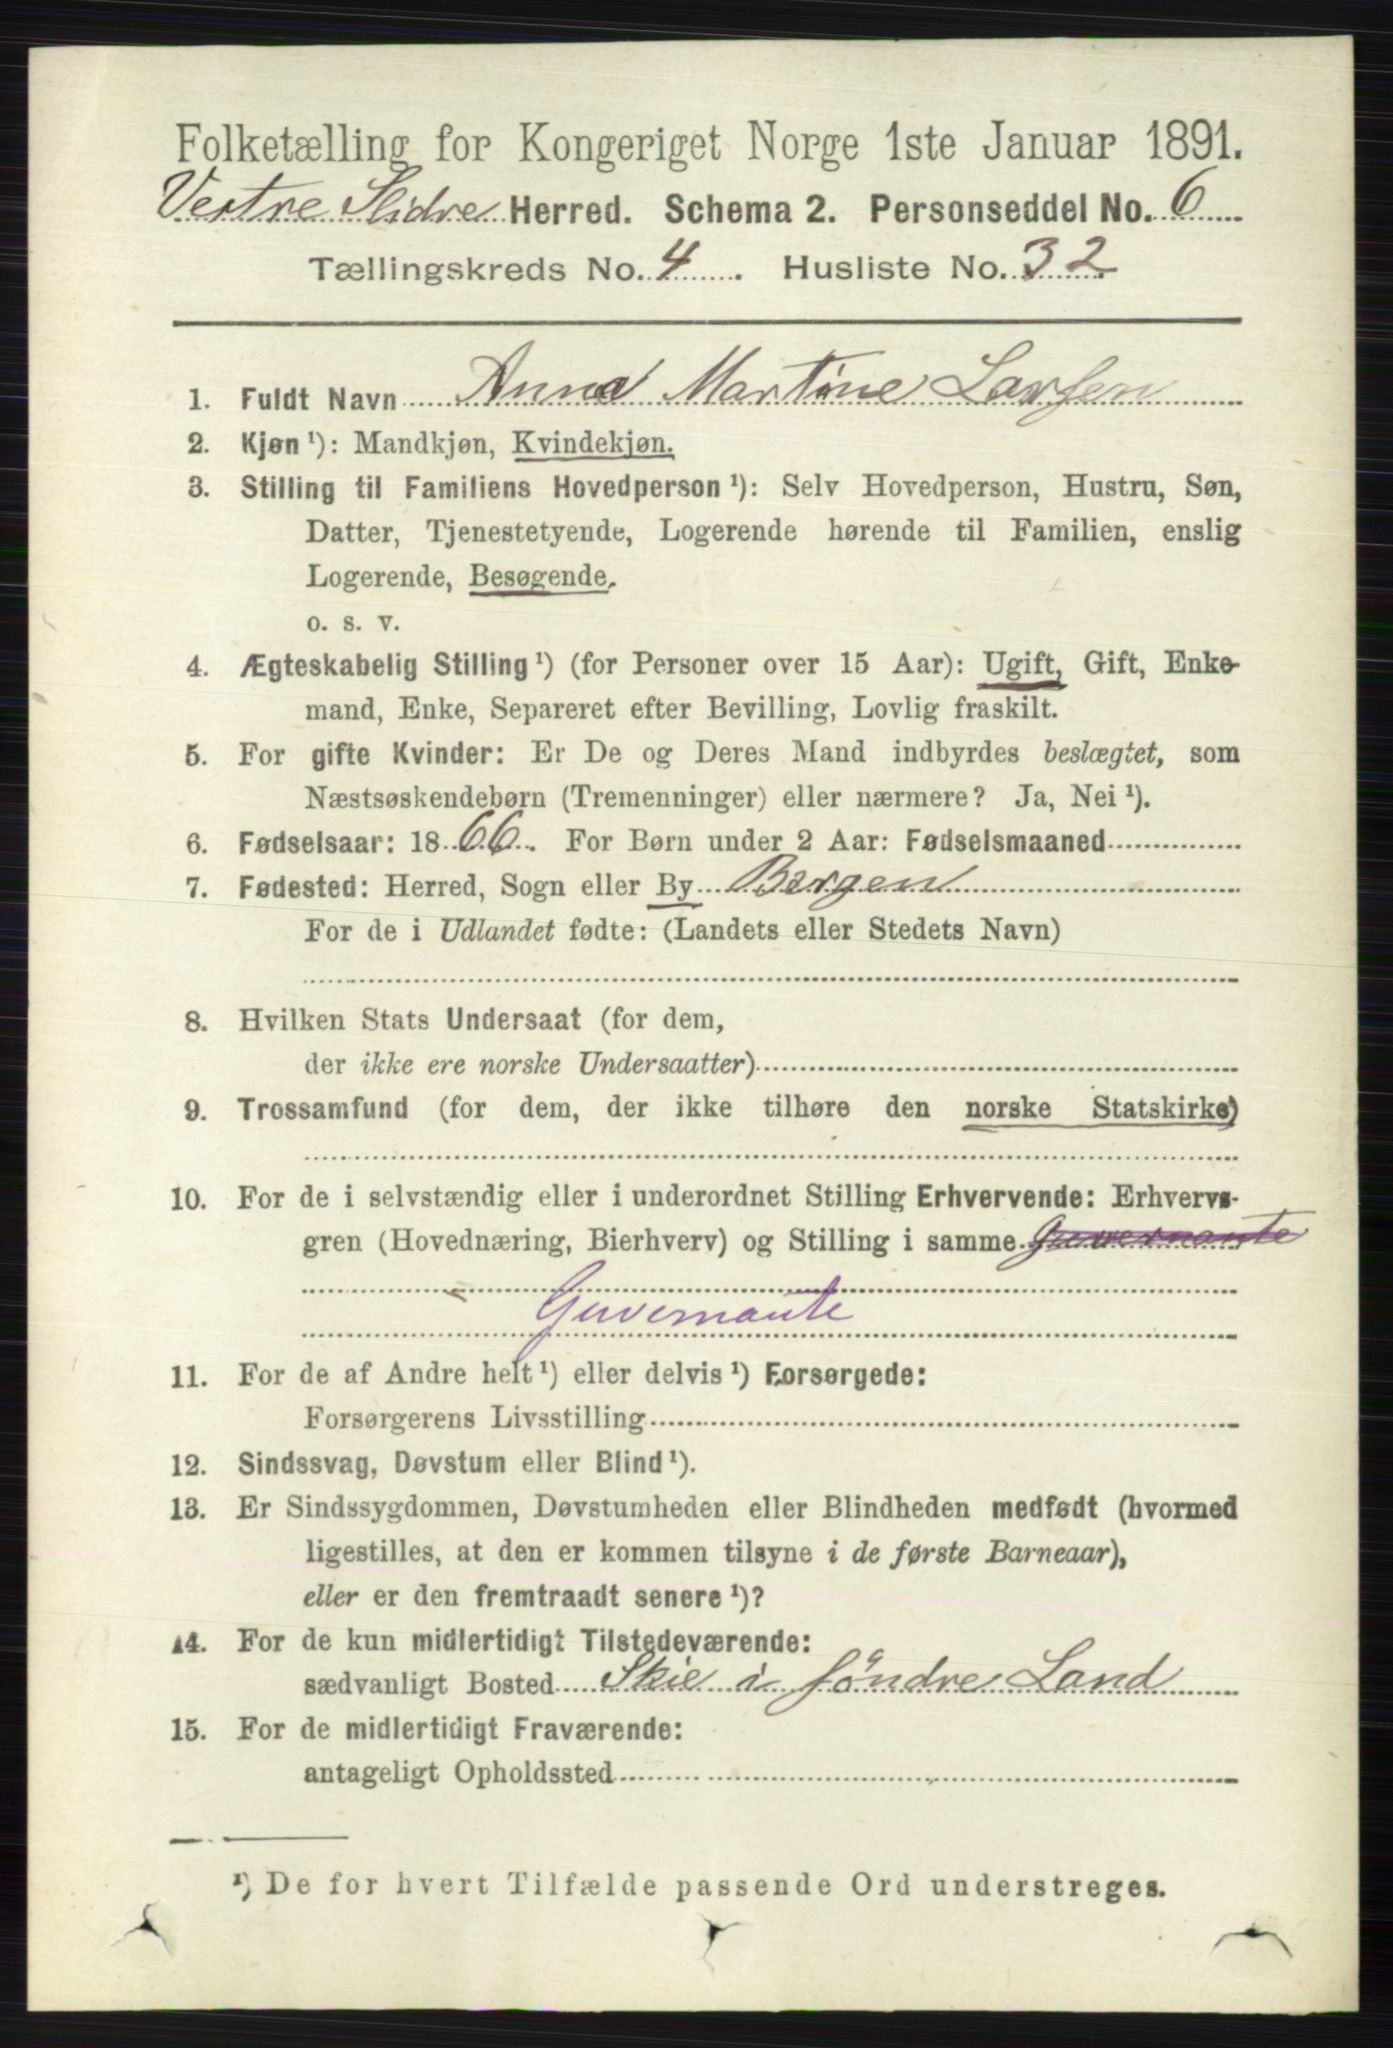 Folketælling for Kongeriget Norge 1ste Januar 1891.
Vestre Slidre Herred. Schema 2. Personseddel No. 6
Tællingskreds No. 4. Husliste No. 32
1. Fuldt Navn Anna Martine Larsen
2. Kjøn ¹): Mandkjøn, Kvindekjøn.
3. Stilling til Familiens Hovedperson ¹): Selv Hovedperson, Hustru, Søn,
Datter, Tjenestetyende, Logerende hørende til Familien, enslig
Logerende, Besøgende.
o. s. v.
4. Ægteskabelig Stilling ¹) (for Personer over 15 Aar): Ugift, Gift, Enke-
mand, Enke, Separeret efter Bevilling, Lovlig fraskilt.
5. For gifte Kvinder: Er De og Deres Mand indbyrdes beslægtet, som
Næstsøskendebørn (Tremenninger) eller nærmere? Ja, Nei ¹).
6. Fødselsaar: 1866. For Børn under 2 Aar: Fødselsmaaned
7. Fødested: Herred, Sogn eller By Bergen
For de i Udlandet fødte: (Landets eller Stedets Navn)
8. Hvilken Stats Undersaat (for dem,
der ikke ere norske Undersaatter)
9. Trossamfund (for dem, der ikke tilhøre den norske Statskirke)
10. For de i selvstændig eller i underordnet Stilling Erhvervende: Erhvervs-
gren (Hovednæring, Bierhverv) og Stilling i samme Guvernante
Guvernante
11. For de af Andre helt ¹) eller delvis ¹) Forsørgede:
Forsørgerens Livsstilling
12. Sindssvag, Døvstum eller Blind ¹).
13. Er Sindssygdommen, Døvstumheden eller Blindheden medfødt (hvormed
ligestilles, at den er kommen tilsyne i de første Barneaar),
eller er den fremtraadt senere ¹)?
14. For de kun midlertidigt Tilstedeværende:
sædvanligt Bosted Skie i søndre Land
15. For de midlertidigt Fraværende:
antageligt Opholdssted
¹) De for hvert Tilfælde passende Ord understreges.